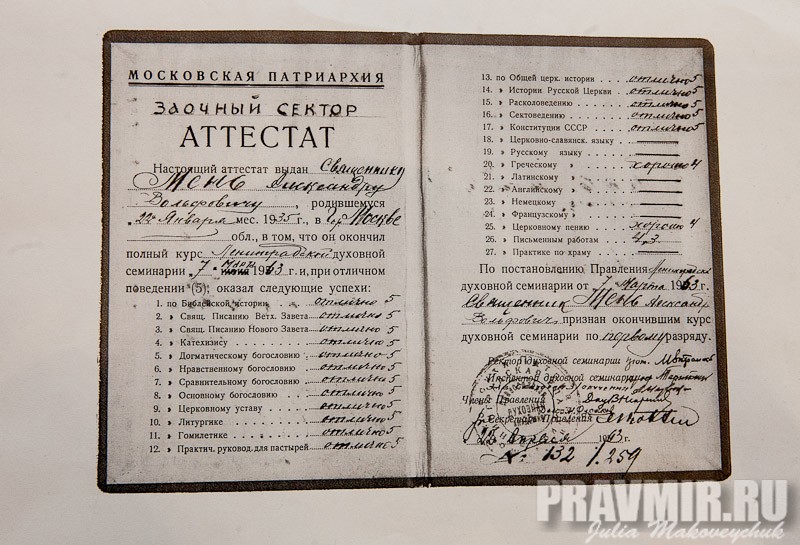 МОСКОВСКАЯ ПАТРИАРХИЯ
ЗАОЧНЫЙ СЕКТОР
АТТЕСТАТ
Настоящий аттестат выдан Священнику
Мень Александру
Вольфовичу, родившемуся
22 Января мес. 1935 г., в гор. Москве
обл., в том, что он окончил
полный курс Ленинградской духовной
семинарии 7 марта 1963 г. и, при отличном
поведении (5), оказал следующие успехи:
1. по Библейской истории отлично 5
2. » Свящ. Писанию Ветх. Завета отлично 5
3. » Свящ. Писанию Нового Завета отлично 5
4. » Катехизису отлично 5
5. » Догматическому богословию отлично 5
6. » Нравственному богословию отлично 5
7. » Сравнительному богословию отлично 5
8. » Основному богословию отлично 5
9. » Церковному уставу отлично 5
10. » Литургике отлично 5
11. » Гомилетике отлично 5
12. » Практич. руковод. для пастырей отлично 5
13. по Общей церк. истории отлично 5
14. » Истории Русской Церкви отлично 5
15. » Расколоведению отлично 5
16. » Сектоведению отлично 5
17. » Конституции СССР отлично 5
18. » Церковно-славянск. языку
19. » Русскому языку
20. » Греческому » хорошо 4
21. » Латинскому »
22. » Английскому »
23. » Немецкому »
24. » Французскому »
25. » Церковному пению хорошо 4
26. » Письменным работам 4,3
27. » Практике по храму
По постановлению Правления Ленинградской
духовной семинарии от 7 Марта 1963 г.
Священник Мень Александр
Вольфович признан окончившим курс
духовной семинарии по первому разряду.
Ректор духовной семинарии прот.
Инспектор духовной семинарии
Члены Правления
Секретарь Правления
Апреля 1963 г.
№ 132 1.259
PRAVMIR.RU
Julia Makoveychuk